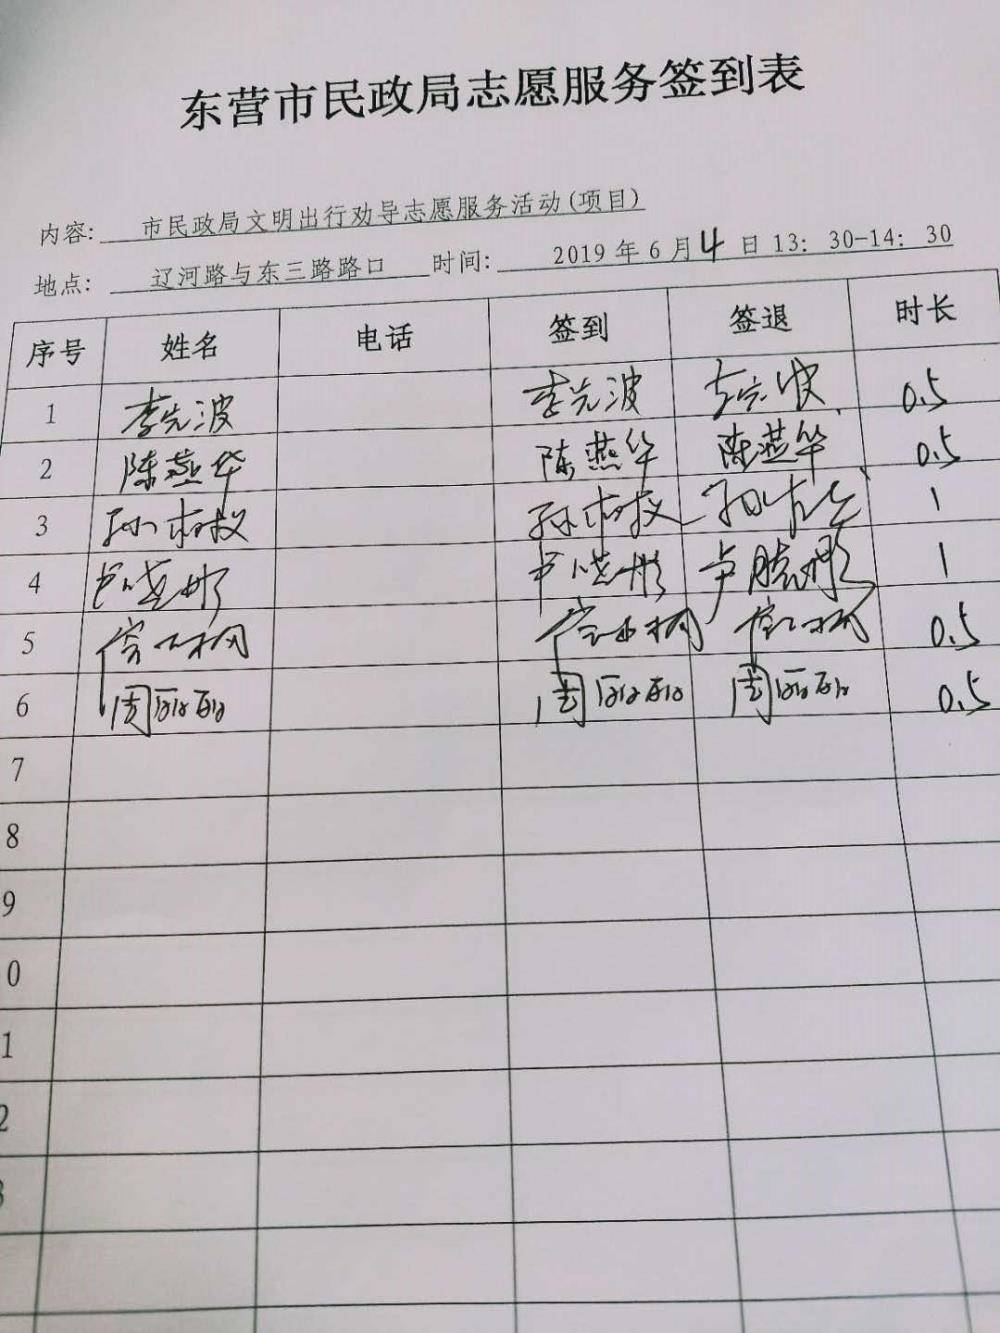 东营市民政局志愿服务签到表
内容: 市民政局文明出行劝导志愿服务活动(项目)
地点: 辽河路与东三路路口 时间: 2019年6月4日13: 30-14: 30
序号 姓名 电话 签到 签退 时长
1 李先波 李先波 李先波 0.5
2 陈燕华 陈燕华 陈燕华 0.5
3 孙 孙 孙 1
4 卢晓彤 卢晓彤 卢晓彤 1
5 0.5
6 周丽丽 周丽丽 周丽丽 0.5
7
8
9
0
1
2
3